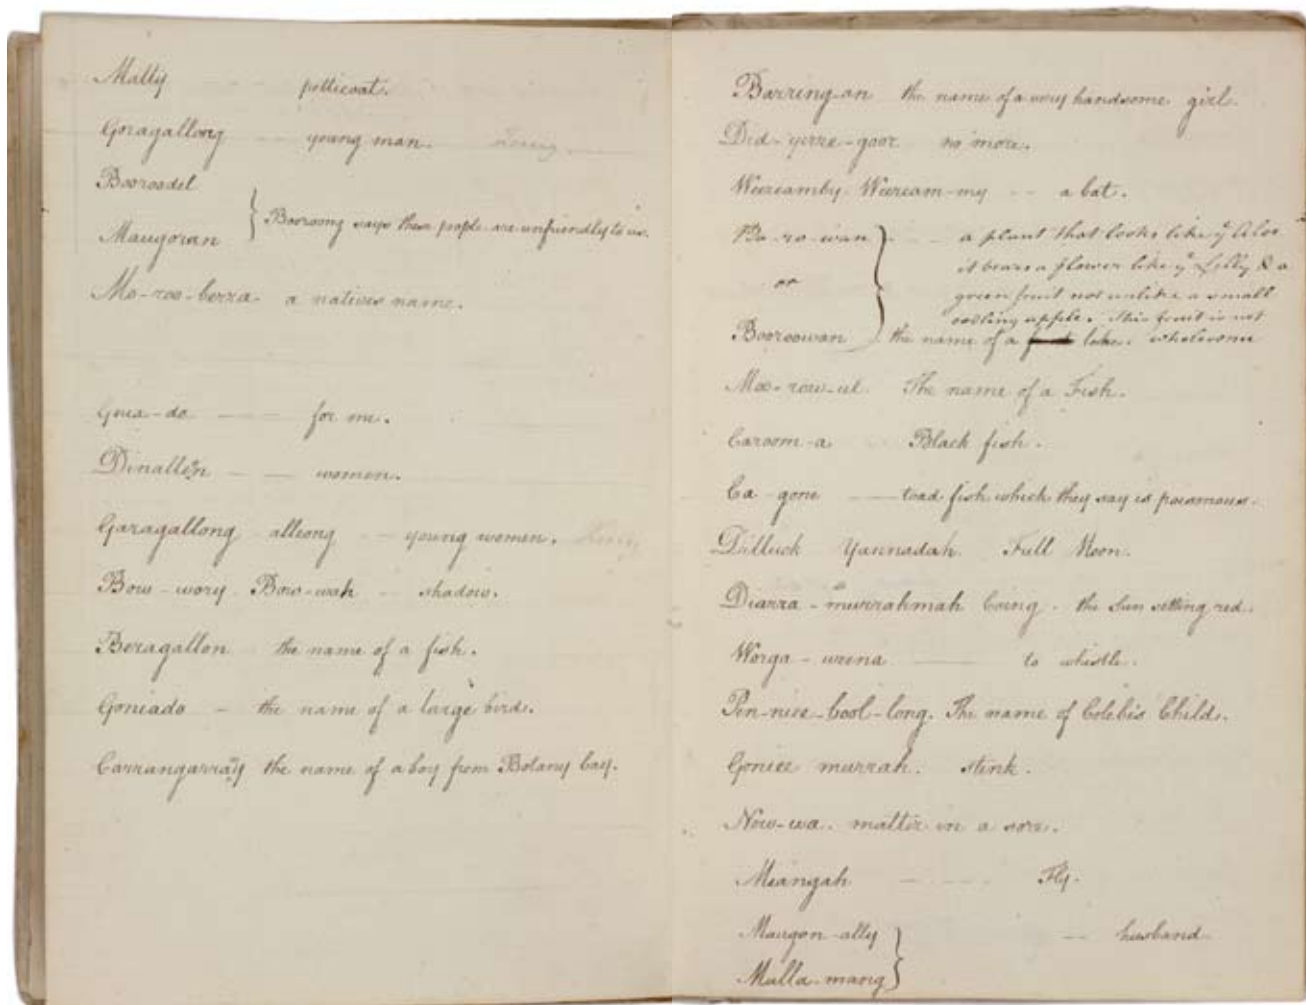 Matty petticoat.
Goragallong young man.
Booroodel
Maugoran } Booroong says these people are unfriendly to us.
Mo-roo-berra. a natives name.
for me.
women.
Garagallong - alleong young women.
Bow-wory. Bow-wah shadow.
Beragallon the name of a fish.
Goniado - the name of a large bird.
Carrangarray the name of a boy from Botany bay.
Barring-an the name of a very handsome girl.
Did-yerre-goor no more.
Weereamby. Weeream-my -- a bat.
Bo-ro-wan a plant that looks like ye Aloe
or it bears a flower like ye Lilly & a
green fruit not unlike a small
apple. This fruit is not
Booroowan } the name of a lake. wholesome
Moo-row-ul The name of a Fish.
Caroom-a Black fish.
Ca-gone toad fish which they say is poisonous.
Dilluck Yannadah. Full Moon.
Diarra-murrahmah Coing. the Sun setting red.
Worga-weena to whistle.
Pen-niee-bool-long. The name of Colebis Child.
Goniee murrah. stink.
Now-wa. matter in a sore.
Miangah Fly.
Maugon-ally
Mulla-mang } -- husband